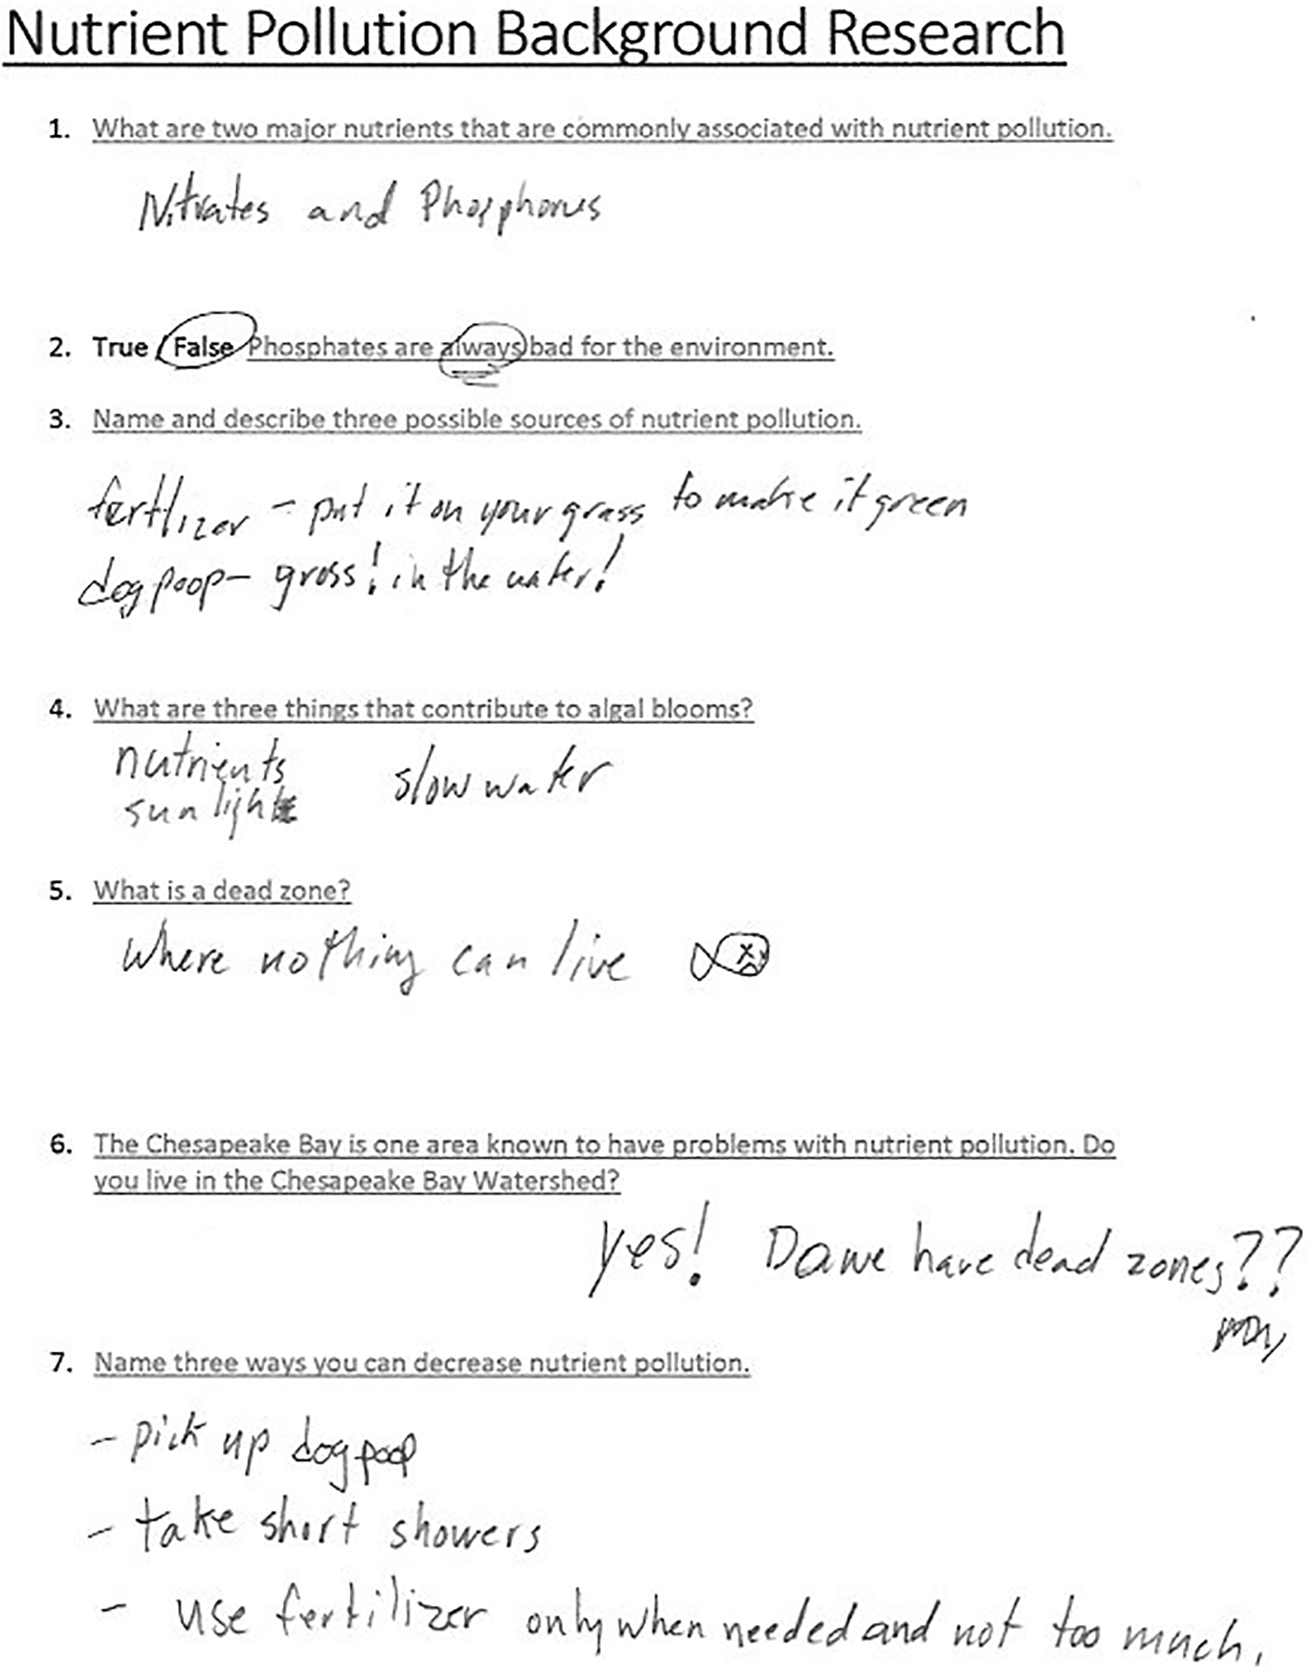 Nutrient Pollution Background Research
1. What are two major nutrients that are commonly associated with nutrient pollution.
Nitrates and Phosphorus
2. True / False Phosphates are always bad for the environment.
3. Name and describe three possible sources of nutrient pollution.
fertlizer - put it on your grass to make it green
dog poop - gross! in the water!
4. What are three things that contribute to algal blooms?
nutrients slow water
sunlight
5. What is a dead zone?
where nothing can live
6. The Chesapeake Bay is one area known to have problems with nutrient pollution. Do
you live in the Chesapeake Bay Watershed?
yes! Do we have dead zones??
7. Name three ways you can decrease nutrient pollution.
- pick up dog poop
- take short showers
- use fertilizer only when needed and not too much.